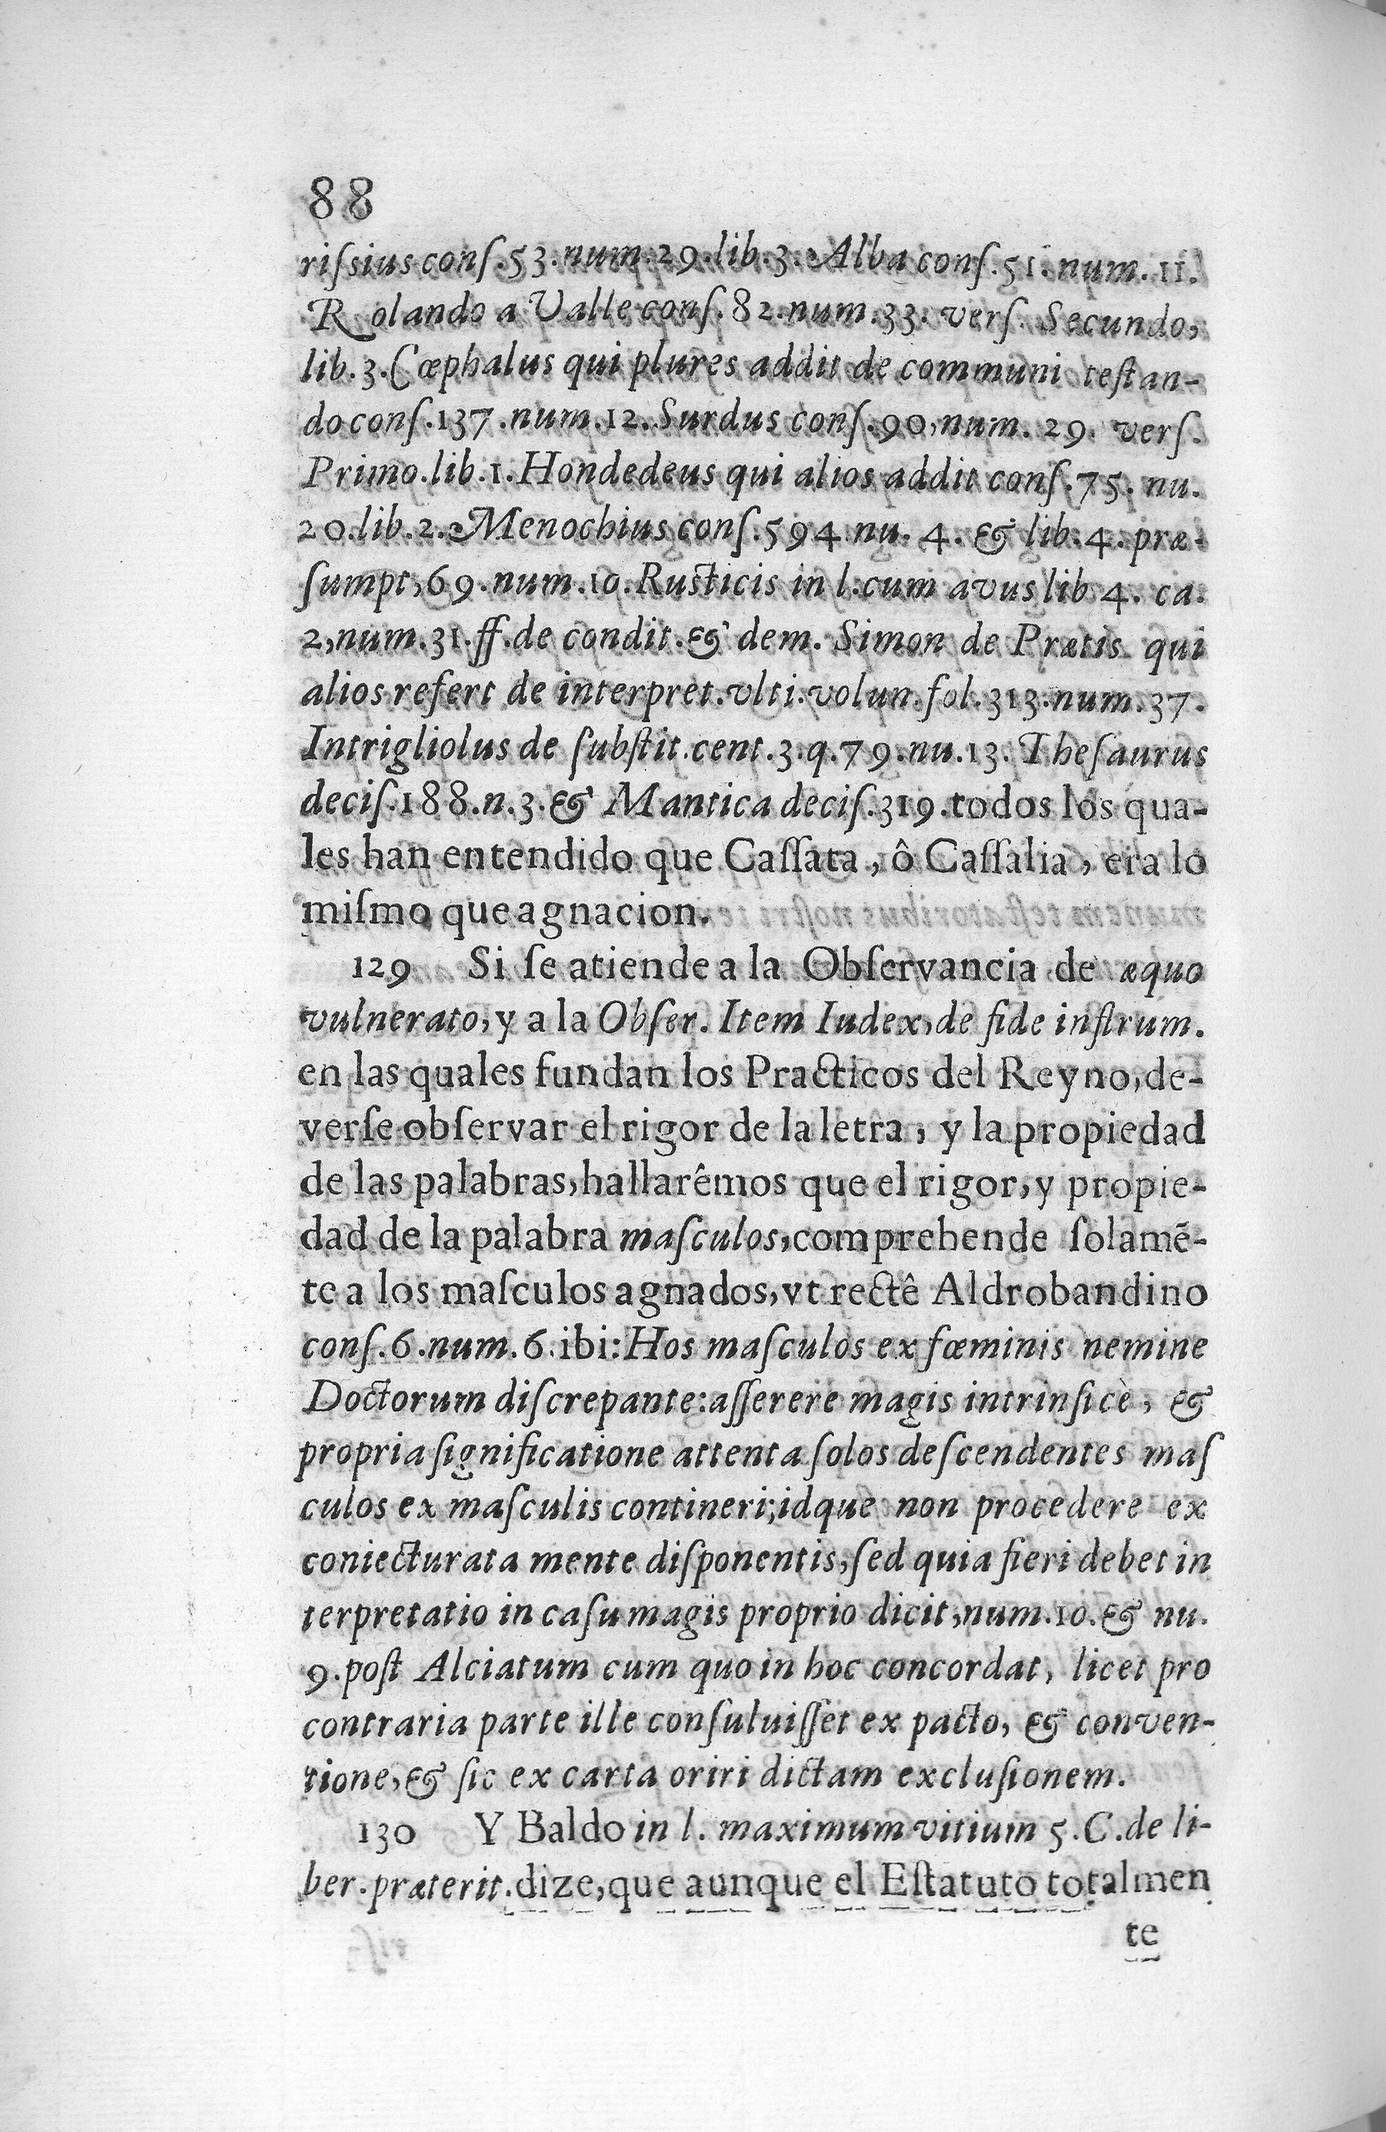 88
riſsius conſ.53.num.29.lib.3. Alba conſ.51.num.11.
Rolando a Valle conſ.82.num.33. verſ. Secundo,
lib.3.Cœphalus qui plures addit de communi teſtan-
do conſ.137.num.12.Surdus conſ.90,num.29. verſ.
Primo.lib.1.Hondedeus qui alios addit conſ.75. nu.
20.lib.2.Menochius conſ.594.nu.4.& lib.4.præ-
ſumpt,69.num.10.Rusticis in l.cum avus lib.4. ca.
2,num.31.ff.de condit.& dem. Simon de Prætis qui
alios refert de interpret.vlti.volun.fol.313.num.37.
Intrigliolus de ſubſtit.cent.3.q.79.nu.13. Theſaurus
deciſ.188.n.3.& Mantica deciſ.319.todos los qua-
les han entendido que Caſſata, ô Caſſalia, era lo
miſmo que agnacion.
129 Si ſe atiende a la Obſervancia de æquo
vulnerato, y a la Obſer. Item Iudex, de fide inſtrum.
en las quales fundan los Practicos del Reyno, de-
verſe obſervar el rigor de la letra, y la propiedad
de las palabras, hallarêmos que el rigor, y propie-
dad de la palabra maſculos, comprehende ſolamẽ-
te a los maſculos agnados, vt rectê Aldrobandino
conſ.6.num.6.ibi:Hos maſculos ex fœminis nemine
Doctorum diſcrepante:aſſerere magis intrinſicè, &
propria ſignificatione attenta ſolos deſcendentes maſ
culos ex maſculis contineri;idque non procedere ex
coniecturata mente diſponentis, ſed quia fieri debet in
terpretatio in caſu magis proprio dicit,num.10.& nu.
9.poſt Alciatum cum quo in hoc concordat, licet pro
contraria parte ille conſuluiſſet ex pacto, & conven-
tione,& ſic ex carta oriri dictam excluſionem.
130 Y Baldo in l. maximum vitium 5.C.de li-
ber.præterit.dize,que aunque el Eſtatuto totalmen
te